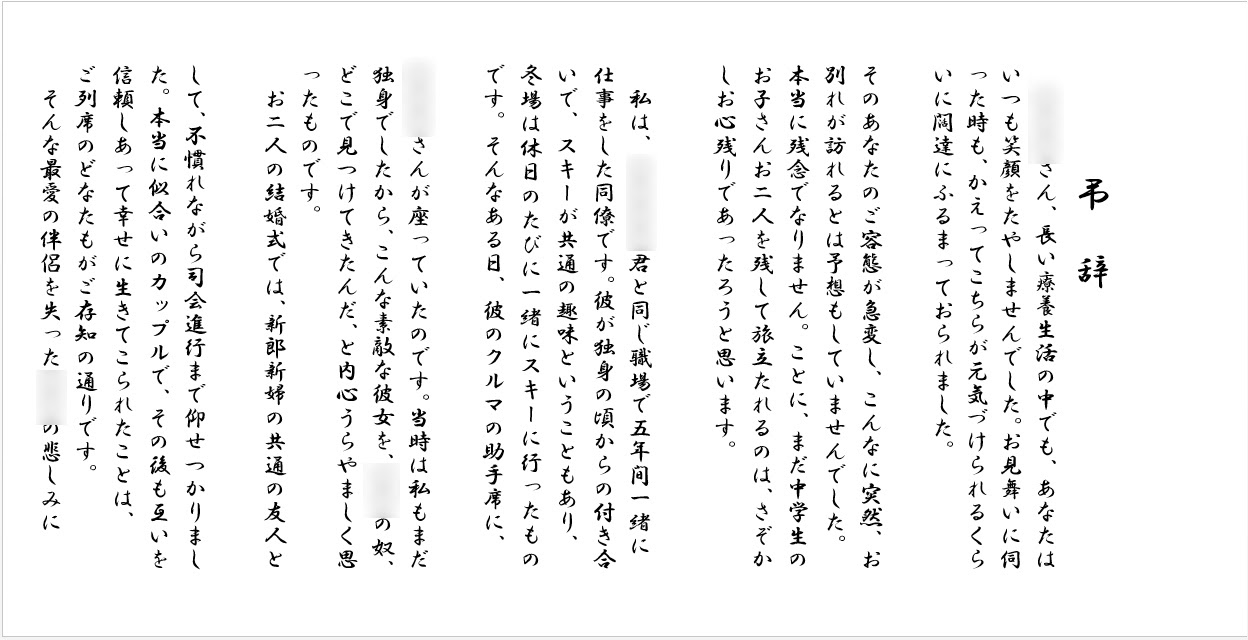 弔辞
さん、長い療養生活の中でも、あなたは
いつも笑顔をたやしませんでした。お見舞いに伺
った時も、かえってこちらが元気づけられるくら
いに闊達にふるまっておられました。
そのあなたのご容態が急変し、こんなに突然、お
別れが訪れるとは予想もしていませんでした。
本当に残念でなりません。ことに、まだ中学生の
お子さんお二人を残して旅立たれるのは、さぞか
しお心残りであったろうと思います。
私は、君と同じ職場で五年間一緒に
仕事をした同僚です。彼が独身の頃からの付き合
いで、スキーが共通の趣味ということもあり、
冬場は休日のたびに一緒にスキーに行ったもの
です。そんなある日、彼のクルマの助手席に、
さんが座っていたのです。当時は私もまだ
独身でしたから、こんな素敵な彼女を、の奴、
どこで見つけてきたんだ、と内心うらやましく思
ったものです。
お二人の結婚式では、新郎新婦の共通の友人と
して、不慣れながら司会進行まで仰せつかりまし
た。本当に似合いのカップルで、その後も互いを
信頼しあって幸せに生きてこられたことは、
ご列席のどなたもがご存知の通りです。
そんな最愛の伴侶を失ったの悲しみに